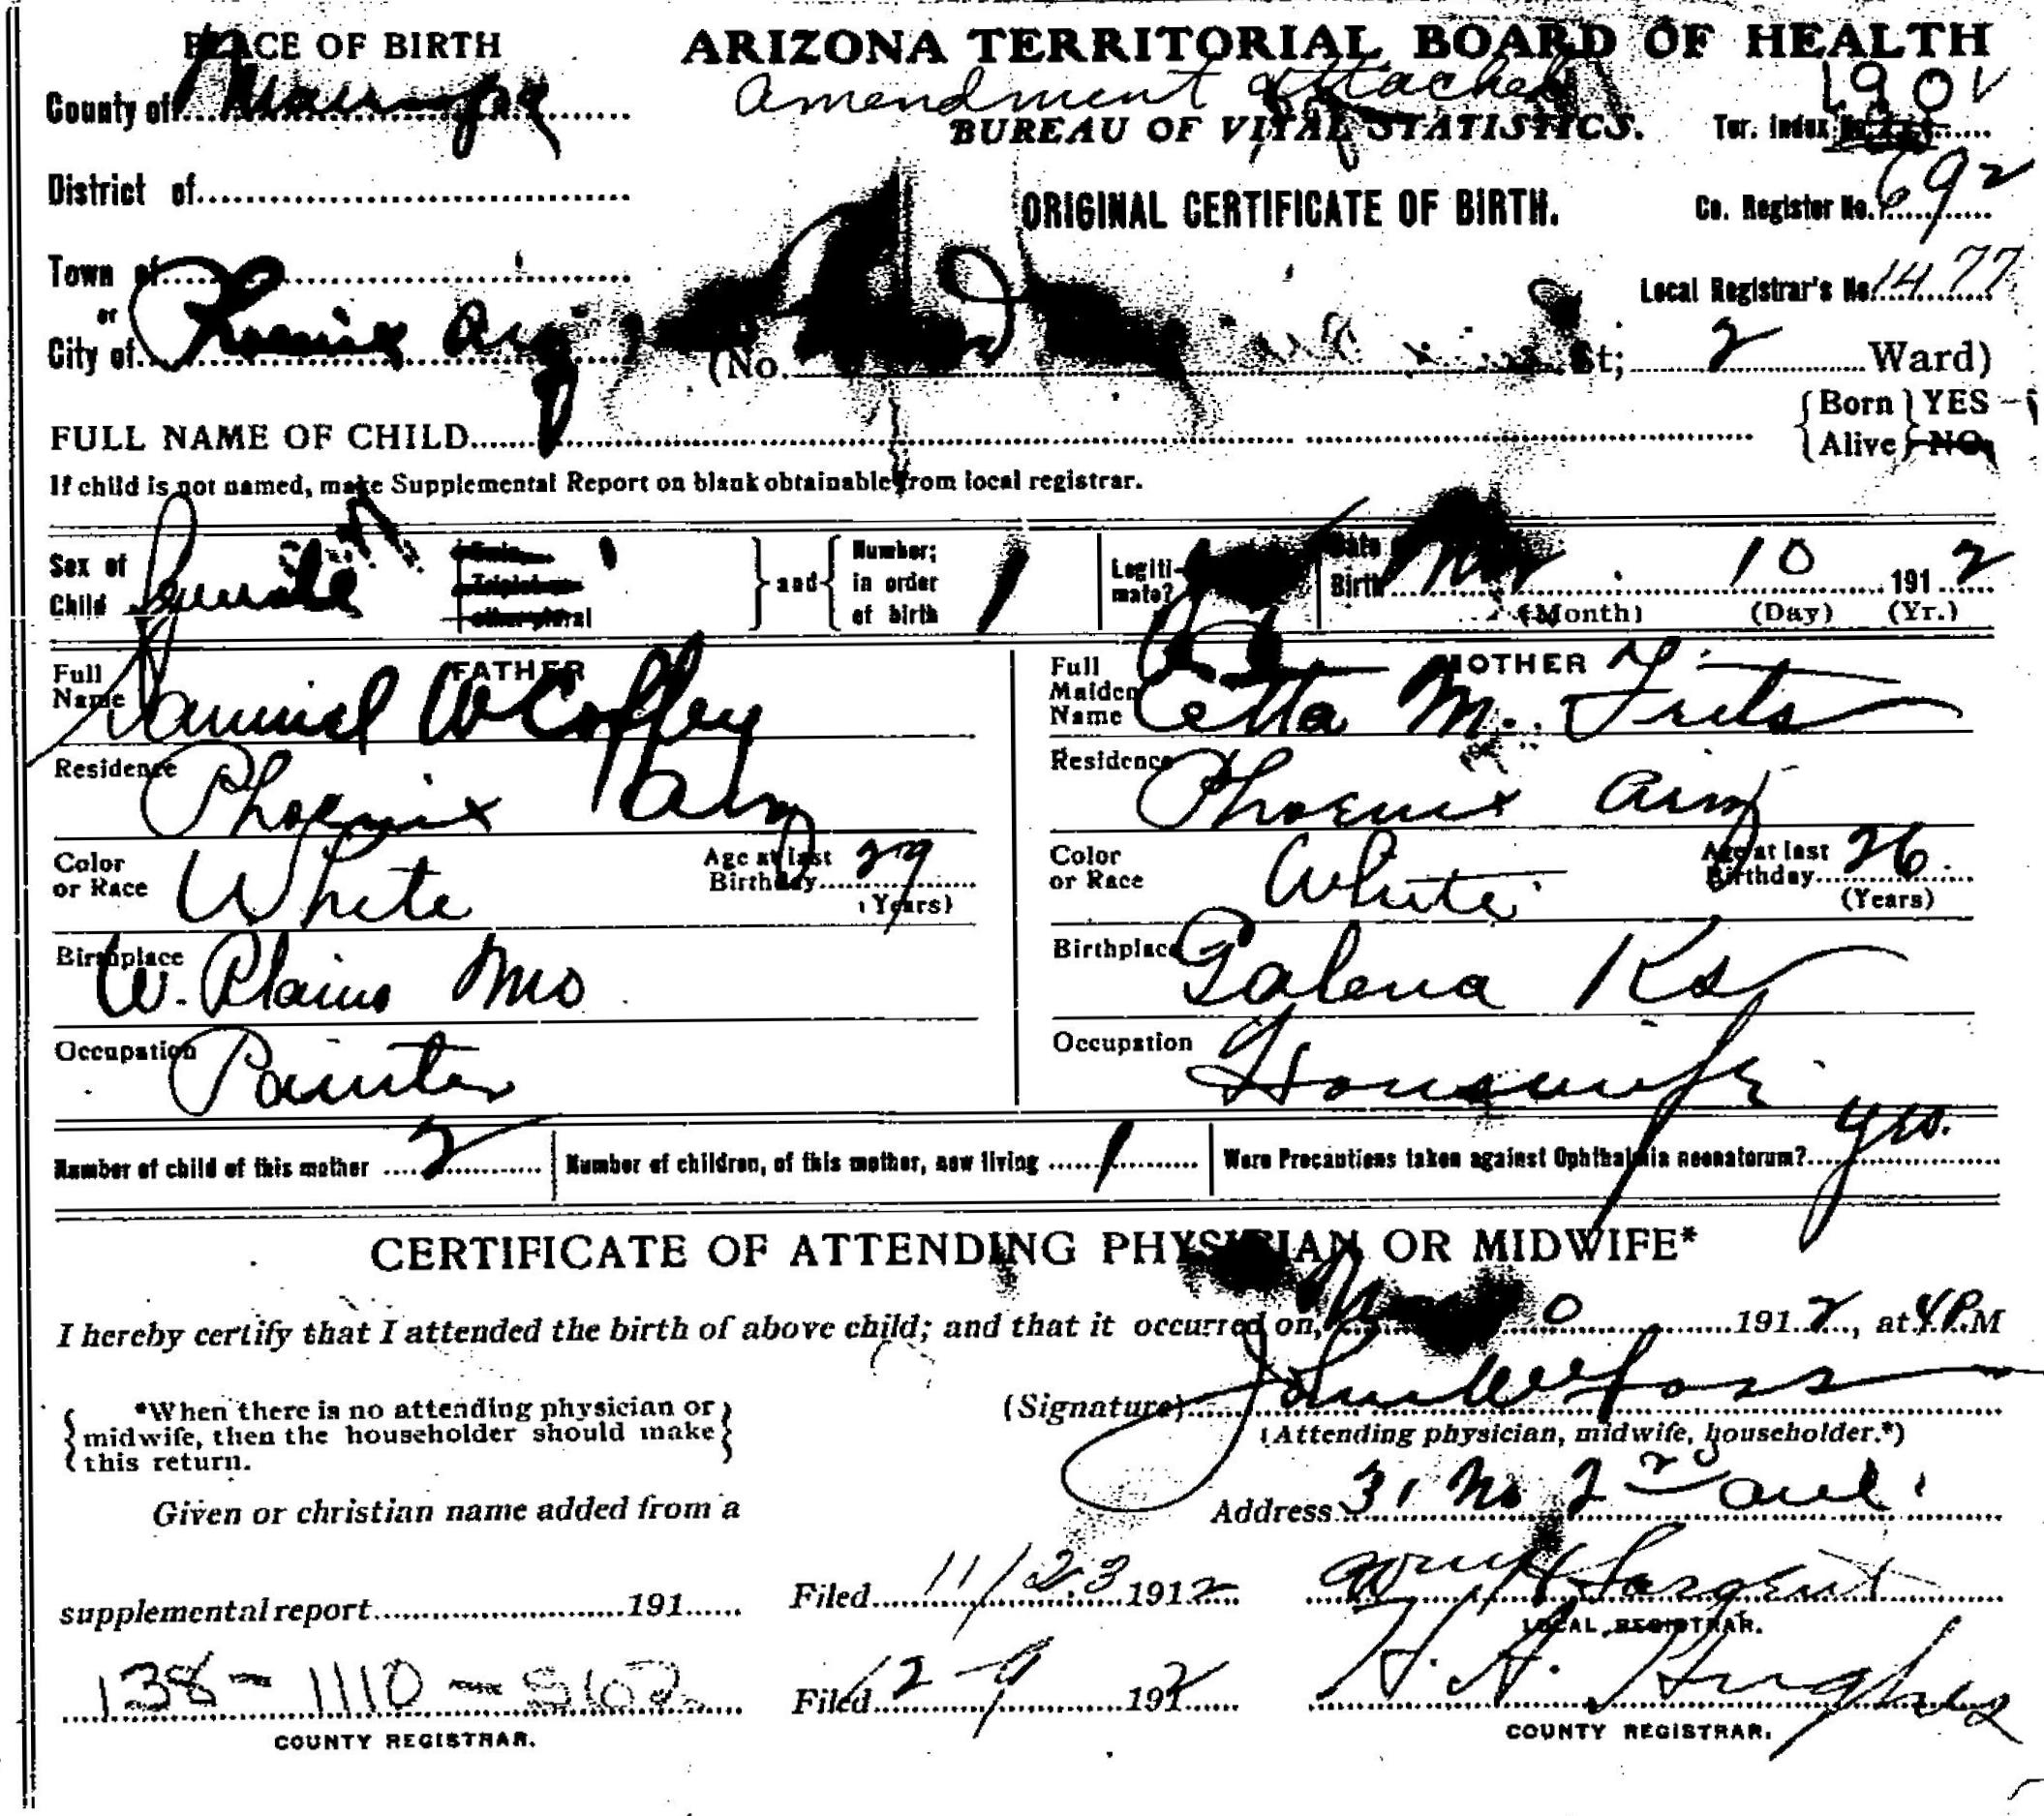 PLACE OF BIRTH
ARIZONA TERRITORIAL BOARD OF HEALTH
Amendment attached
County of Maricopa
BUREAU OF VITAL STATISTICS.
Ter. Index No. 1901
District of
ORIGINAL CERTIFICATE OF BIRTH.
Co. Register No. 692
Town of
Local Registrar's No. 1477
or
City of Phoenix Ariz (No. St; 2 Ward)
FULL NAME OF CHILD
{Born Alive} YES NO
If child is not named, make Supplemental Report on blank obtainable from local registrar.
Sex of Child Female
Twin, Triplet or other plural } and { Number; in order of birth 1
Legitimate?
Date Birth Nov 10 1912
(Month) (Day) (Yr.)
FATHER
Full Name Samuel W Coffey
MOTHER
Full Maiden Name Etta M. Frets
Residence Phoenix Ariz
Residence Phoenix Ariz
Color or Race White Age at last Birthday 29 (Years)
Color or Race White Age at last Birthday 26 (Years)
Birthplace W. Plains Mo
Birthplace Galena Ks
Occupation Painter
Occupation Housewife
Number of child of this mother 2 Number of children, of this mother, now living 1 Were Precautions taken against Ophthalmia neonatorum? yes.
CERTIFICATE OF ATTENDING PHYSICIAN OR MIDWIFE*
I hereby certify that I attended the birth of above child; and that it occurred on, 1912, at 4 P.M
(Signature) Foss
{*When there is no attending physician or midwife, then the householder should make this return.}
(Attending physician, midwife, householder.*)
Address 31 No 2nd ave.
Given or christian name added from a
supplemental report 191
Filed 11/23 1912
Sargent
LOCAL REGISTRAR.
138-1110-
Filed 12-9 1912
H. H. Hughes
COUNTY REGISTRAR.
COUNTY REGISTRAR.